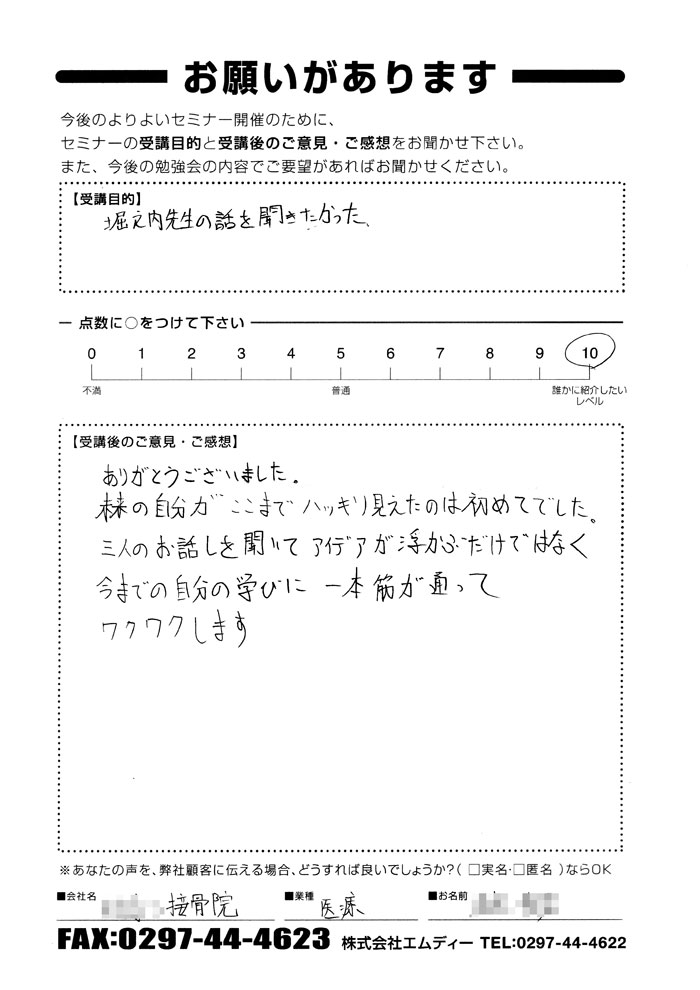 お願いがあります
今後のよりよいセミナー開催のために、
セミナーの受講目的と受講後のご意見・ご感想をお聞かせ下さい。
また、今後の勉強会の内容でご要望があればお聞かせください。
【受講目的】
堀之内先生の話を聞きたかった、
点数に○をつけて下さい
0 1 2 3 4 5 6 7 8 9 10
不満 普通 誰かに紹介したい
レベル
【受講後のご意見・ご感想】
ありがとうございました。
未来の自分がここまでハッキリ見えたのは初めてでした。
三人のお話しを聞いてアイデアが浮かぶだけではなく
今までの自分の学びに一本筋が通って
ワクワクします
※あなたの声を、弊社顧客に伝える場合、どうすれば良いでしょうか?( □実名・□匿名 )ならOK
■会社名 接骨院 ■業種 医療 ■お名前
FAX:0297-44-4623 株式会社エムディー TEL:0297-44-4622